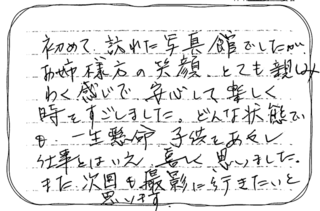 初めて訪れた写真館でしたが
お姉様方の笑顔、とても親しみ
わく感じで 安心して 楽しく
時をすごしました。どんな状態で
も 一生懸命 子供をあやし
仕事とはいえ、喜しく 思いました。
また 次回も撮影に行きたいと
思います。